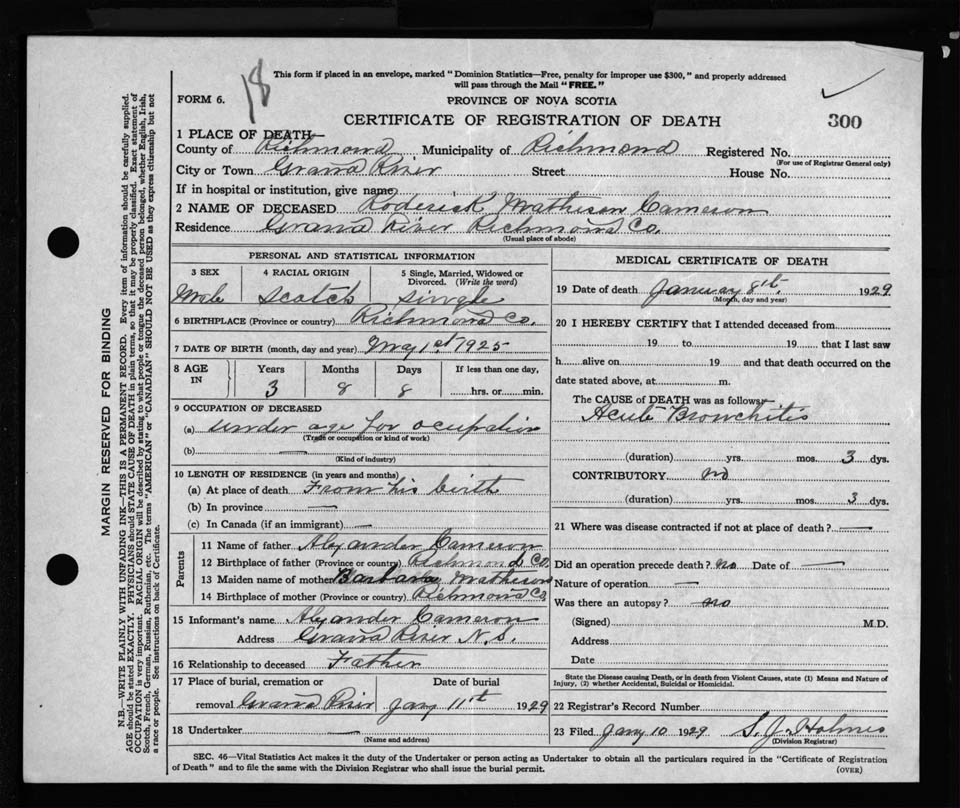 18
This form if placed in an envelope, marked "Dominion Statistics—Free, penalty for improper use $300," and properly addressed
will pass through the Mail "FREE."
FORM 6.
PROVINCE OF NOVA SCOTIA
CERTIFICATE OF REGISTRATION OF DEATH
300
1 PLACE OF DEATH—
County of Richmond Municipality of Richmond Registered No.
(For use of Registrar General only)
City or Town Grand River Street House No.
If in hospital or institution, give name
2 NAME OF DECEASED Roderick Matheson Cameron
Residence Grand River Richmond Co.
(Usual place of abode)
PERSONAL AND STATISTICAL INFORMATION
3 SEX 4 RACIAL ORIGIN 5 Single, Married, Widowed or
Divorced. (Write the word)
Male Scotch Single
6 BIRTHPLACE (Province or country) Richmond Co.
7 DATE OF BIRTH (month, day and year) May 1st 1925
8 AGE IN Years Months Days If less than one day,
3 8 8 hrs. or min.
9 OCCUPATION OF DECEASED
(a) under age for ocupation
(Trade or occupation or kind of work)
(b) —
(Kind of industry)
10 LENGTH OF RESIDENCE (in years and months)
(a) At place of death From his birth
(b) In province —
(c) In Canada (if an immigrant) —
Parents
11 Name of father Alexander Cameron
12 Birthplace of father (Province or country) Richmond Co.
13 Maiden name of mother Barbara Matheson
14 Birthplace of mother (Province or country) Richmond Co
15 Informant's name Alexander Cameron
Address Grand River N.S.
16 Relationship to deceased Father
17 Place of burial, cremation or Date of burial
removal Grand River Jany 11th 1929
18 Undertaker —
(Name and address)
MEDICAL CERTIFICATE OF DEATH
19 Date of death January 8th 1929
(Month, day and year)
20 I HEREBY CERTIFY that I attended deceased from
19 to 19 that I last saw
h alive on 19 and that death occurred on the
date stated above, at m.
The CAUSE of DEATH was as follows:
Acute Bronchitis
(duration) yrs. mos. 3 dys.
CONTRIBUTORY no
(duration) yrs. mos. 3 dys.
21 Where was disease contracted if not at place of death? —
Did an operation precede death? no Date of —
Nature of operation —
Was there an autopsy? no
(Signed) M.D.
Address
Date
State the Disease causing Death, or in death from Violent Causes, state (1) Means and Nature of
Injury, (2) whether Accidental, Suicidal or Homicidal.
22 Registrar's Record Number
23 Filed Jany 10 1929 S. J. Holmes
(Division Registrar)
SEC. 46—Vital Statistics Act makes it the duty of the Undertaker or person acting as Undertaker to obtain all the particulars required in the "Certificate of Registration
of Death" and to file the same with the Division Registrar who shall issue the burial permit.
(OVER)
MARGIN RESERVED FOR BINDING
N.B.—WRITE PLAINLY WITH UNFADING INK—THIS IS A PERMANENT RECORD. Every item of information should be carefully supplied.
AGE should be stated EXACTLY. PHYSICIANS should STATE CAUSE OF DEATH in plain terms, so that it may be properly classified. Exact statement of
OCCUPATION is very important. RACIAL ORIGIN will be described by stating to what people or tongue the deceased person belonged, whether English, Irish,
Scotch, French, German, Russian, Ruthenian, etc. The terms "AMERICAN" or "CANADIAN" SHOULD NOT BE USED as they express citizenship but not
a race or people. See instructions on back of Certificate.